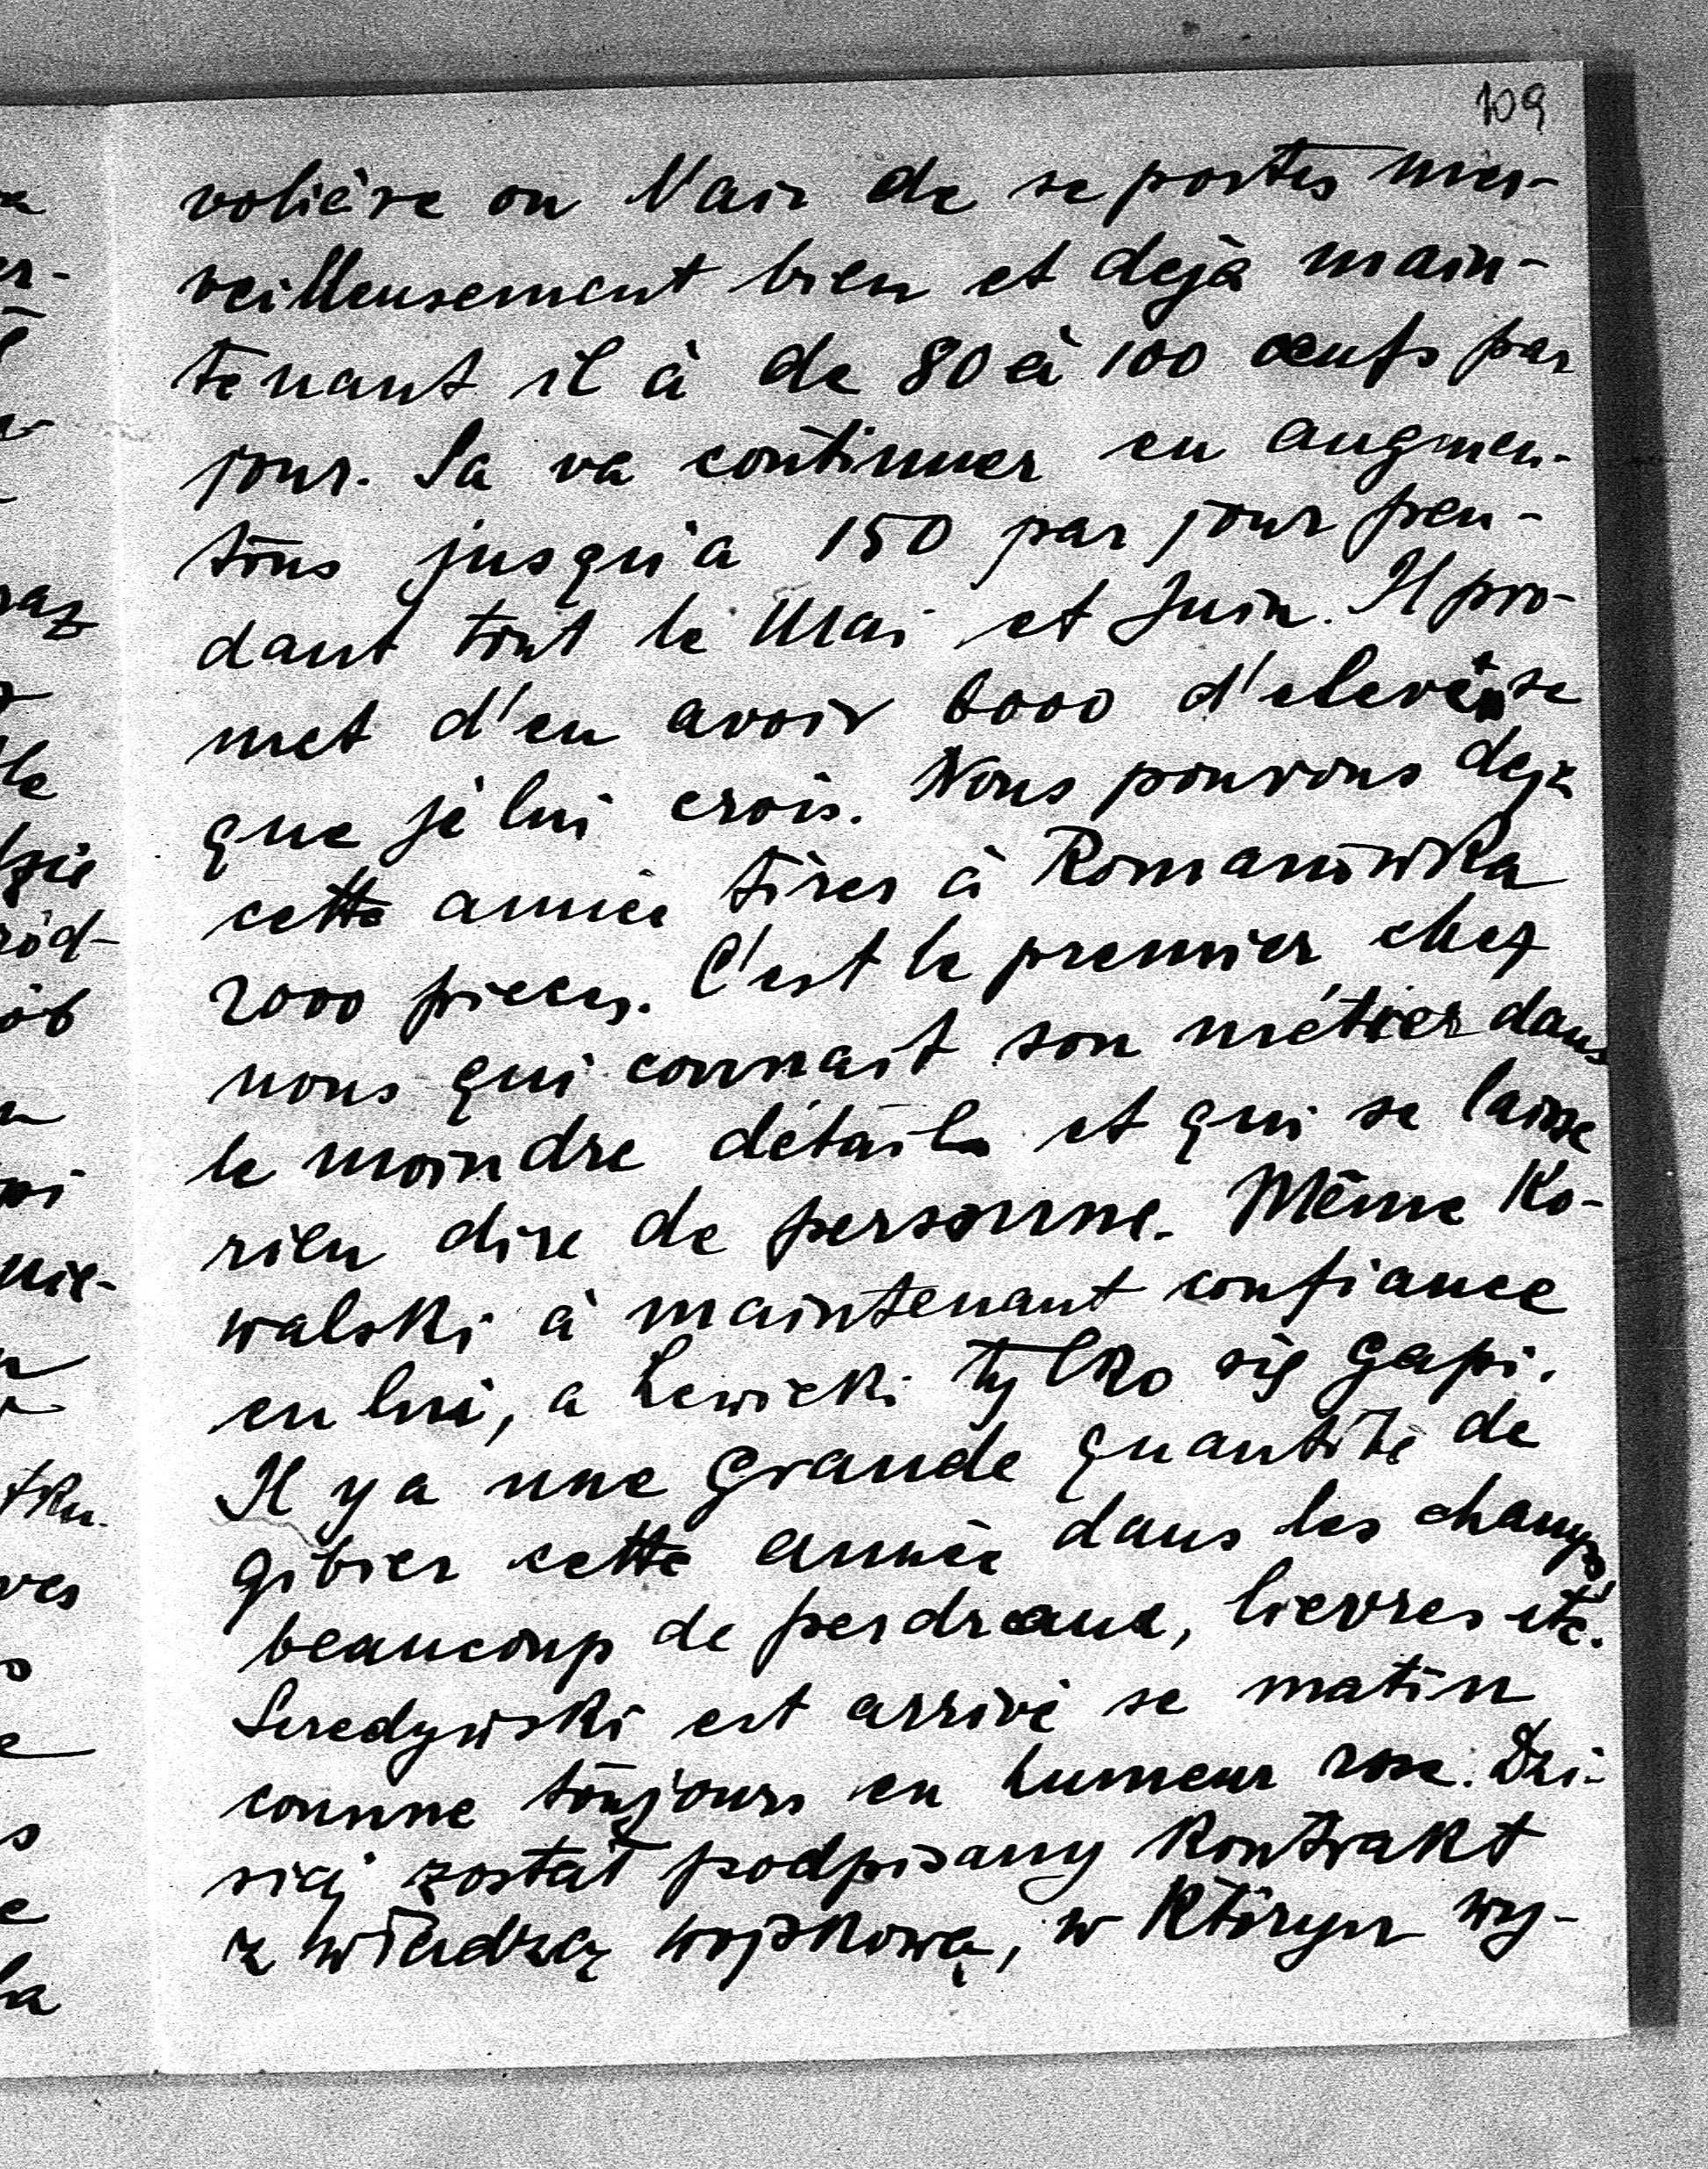 109
volière on l'air de se portes mer-
veilleusement bien et dejà main-
tenant il à de 80 à 100 œufs par
jour. Sa va continuer en augmen-
tons jusqu'a 150 par jour pen-
dant tout le Mai et Juin. Il pro-
met d'en avoir 6000 d'elevé se
que je lui crois. Nous pouvons deja
cette année tirer à Romanówka
2000 pieces. C'est le premier chez
nous qui connait son métier dans
le moindre détails et qui se laisse
rien dire de personne. Même Ko-
walski à maintenant confiance
en lui, a Lewicki tylko się gapi.
Il y a une grande quantité de
gibier cette année dans les champs,
beaucoup de perdreaux, lievres etc.
Seredyński est arrivé se matin
comme toujours en humeur rose. Dzi-
siaj został podpisany kontrakt
z władzą wojskową, w którym wy-